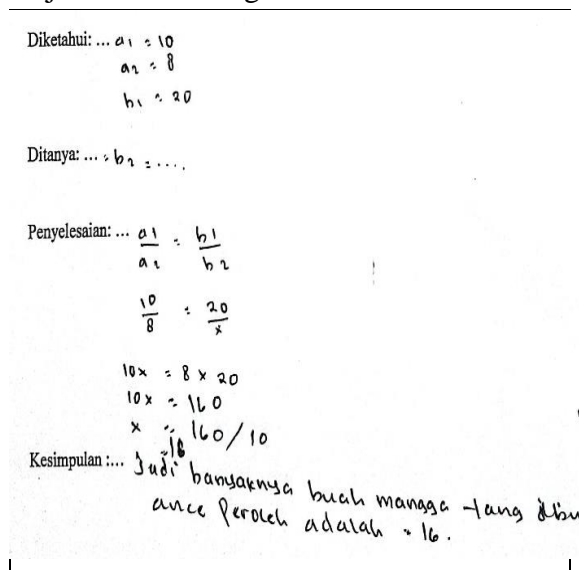 Diketahui: ... a1 = 10
a2 = 8
b1 = 20
Ditanya: ... = b2 = ....
Penyelesaian: ... a1/a2 = b1/b2
10/8 = 20/x
10x = 8 x 20
10x = 160
x = 160/10
= 16
Kesimpulan :... Jadi banyaknya buah mangga yang
ance Peroleh adalah = 16.